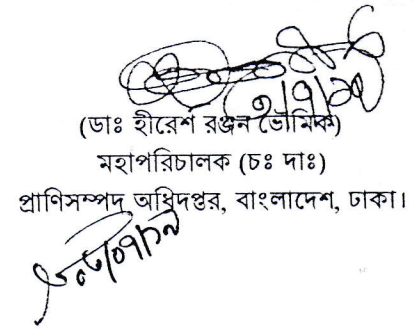 (ডাঃ হীরেশ রঞ্জন ভৌমিক)
মহাপরিচালক (চঃ দাঃ)
প্রাণিসম্পদ অধিদপ্তর, বাংলাদেশ, ঢাকা।